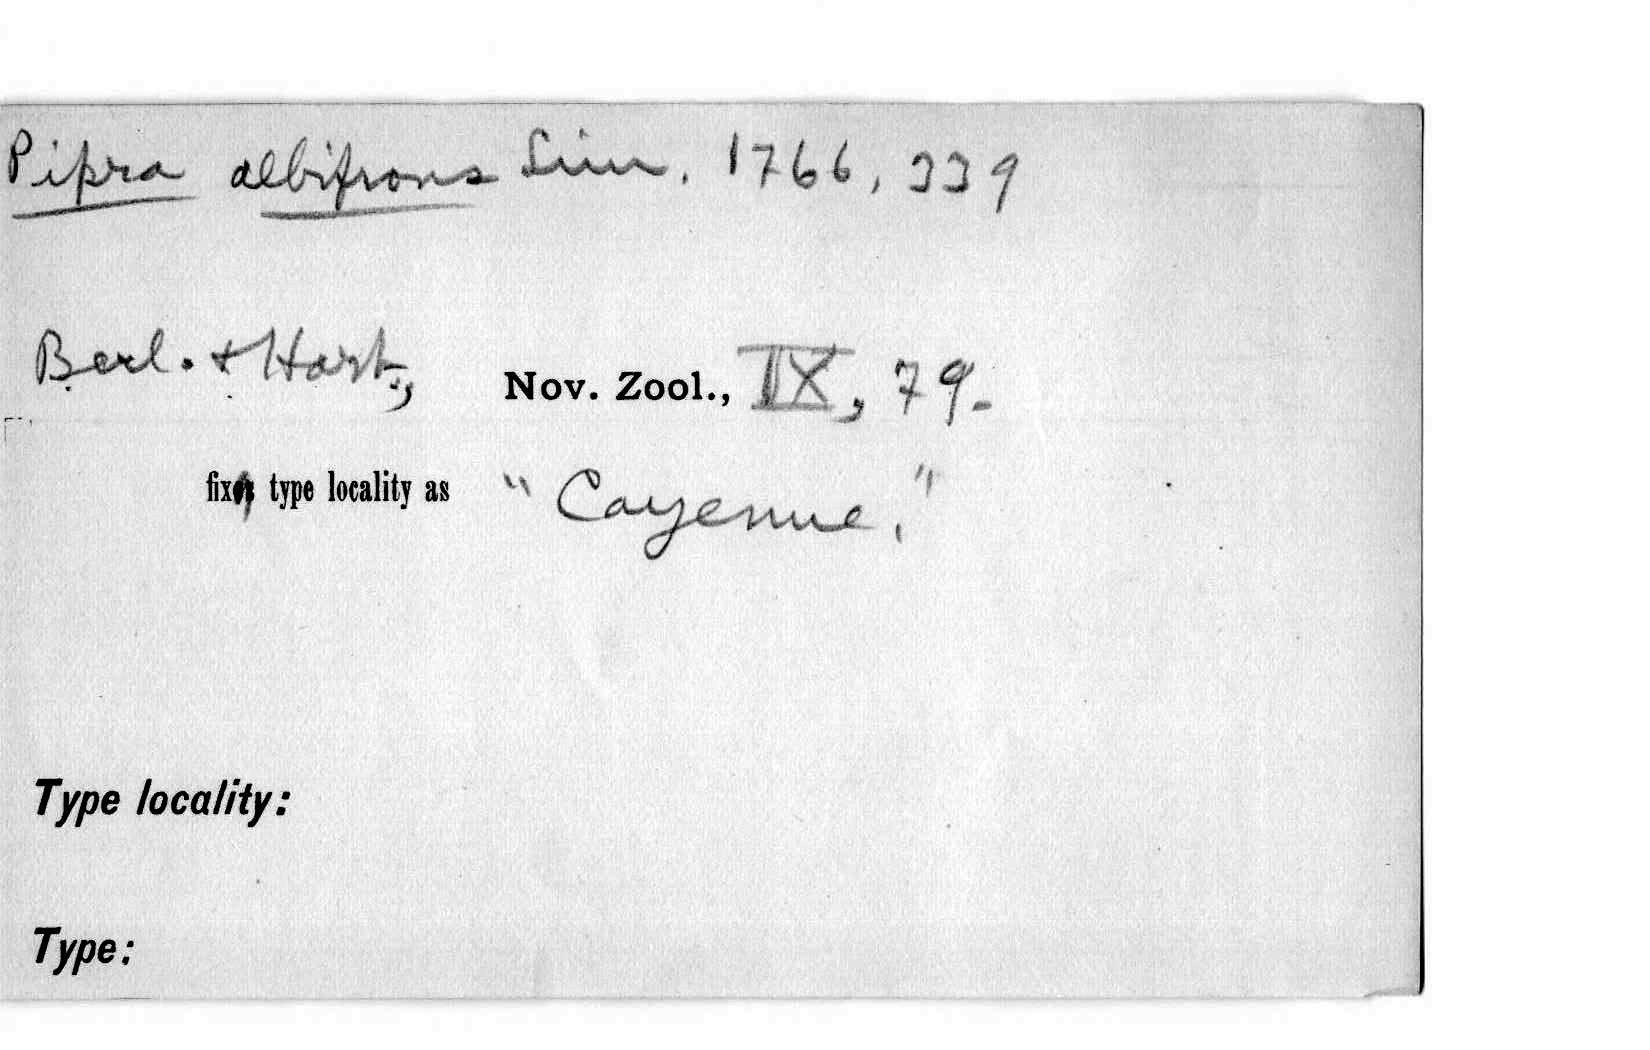 Pipra albifrons Linn. 1766, 339
Berl. + Hart., Nov. Zool., IX, 79-
fix type locality as "Cayenne."
Type locality:
Type: